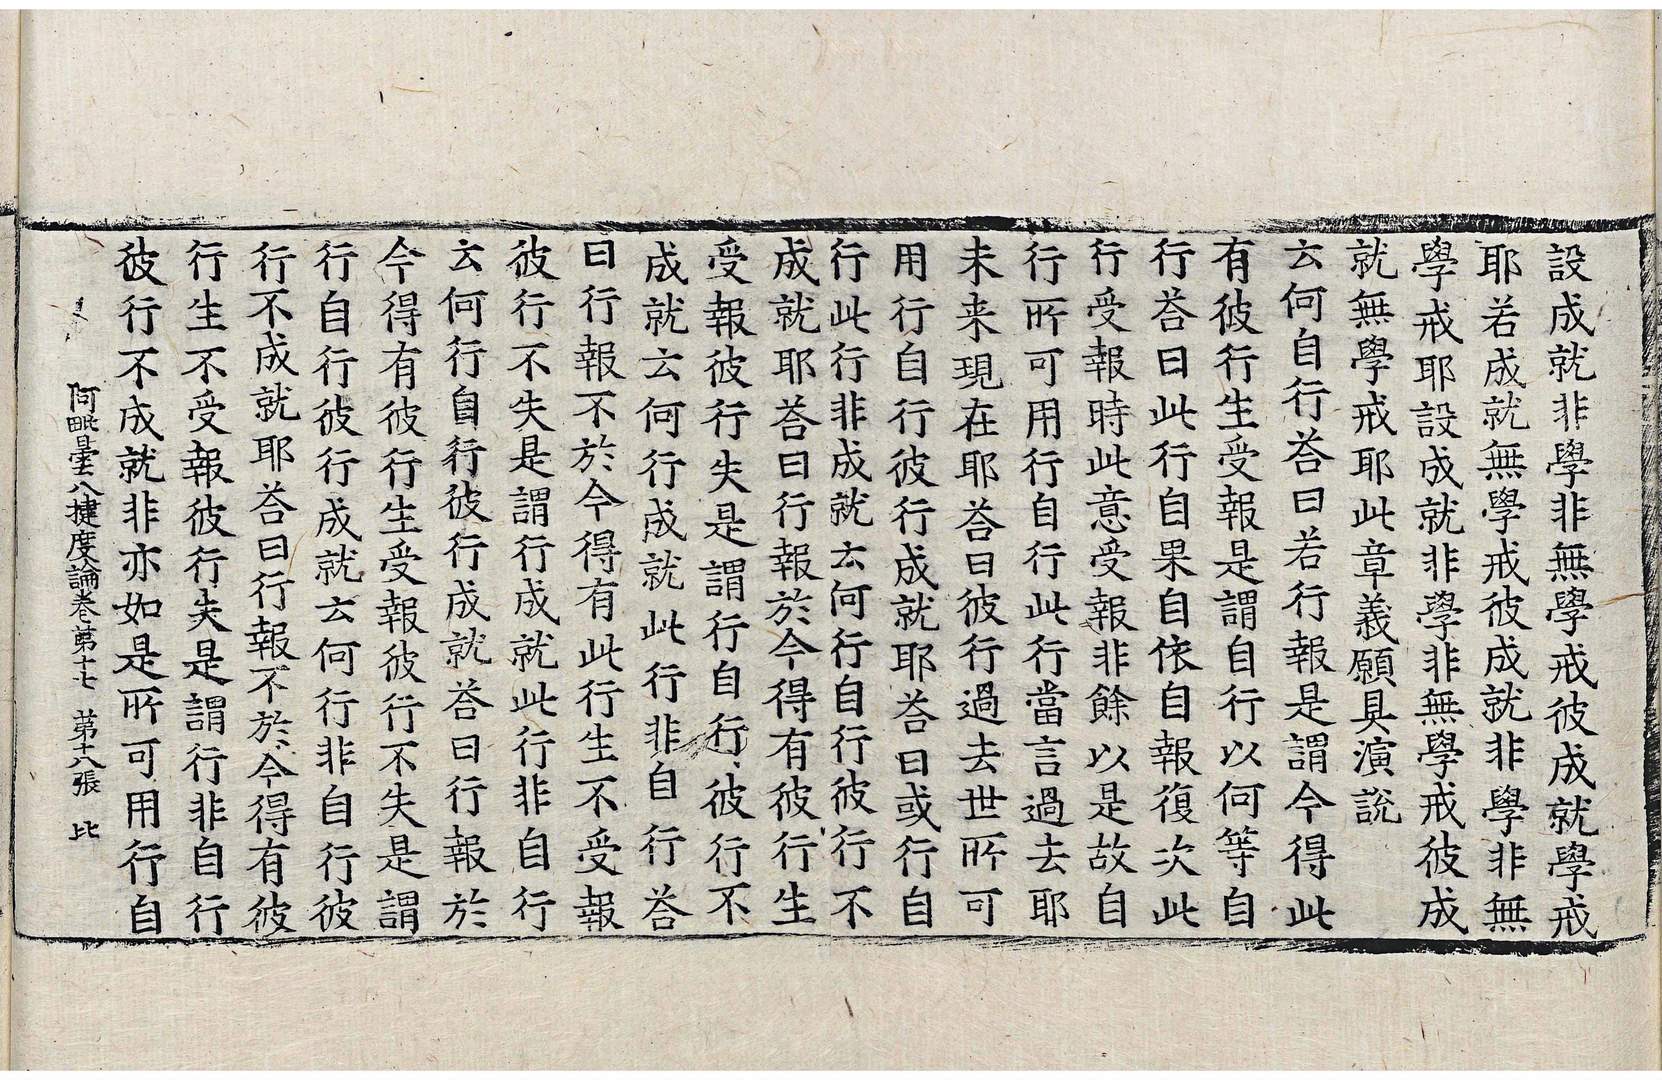 設成就非學非無學戒彼成就學戒
耶若成就無學戒彼成就非學非無
學戒耶設成就非學非無學戒彼成
就無學戒耶此章義願具演說
云何自行荅曰若行報是謂今得此
有彼行生受報是謂自行以何等自
行荅曰此行自果自依自報復次此
行受報時此意受報非餘以是故自
行所可用行自行此行當言過去耶
未来現在耶荅曰彼行過去世所可
用行自行彼行成就耶荅曰或行自
行此行非成就云何行自行彼行不
成就耶荅曰行報於今得有彼行生
受報彼行失是謂行自行彼行不
成就云何行成就此行非自行荅
曰行報不於今得有此行生不受報
彼行不失是謂行成就此行非自行
云何行自行彼行成就荅曰行報於
今得有彼行生受報彼行不失是謂
行自行彼行成就云何行非自行彼
行不成就耶荅曰行報不於今得有彼
行生不受報彼行失是謂行非自行
彼行不成就非亦如是所可用行自
阿毗曇八揵度論卷第十七 第十八張 比